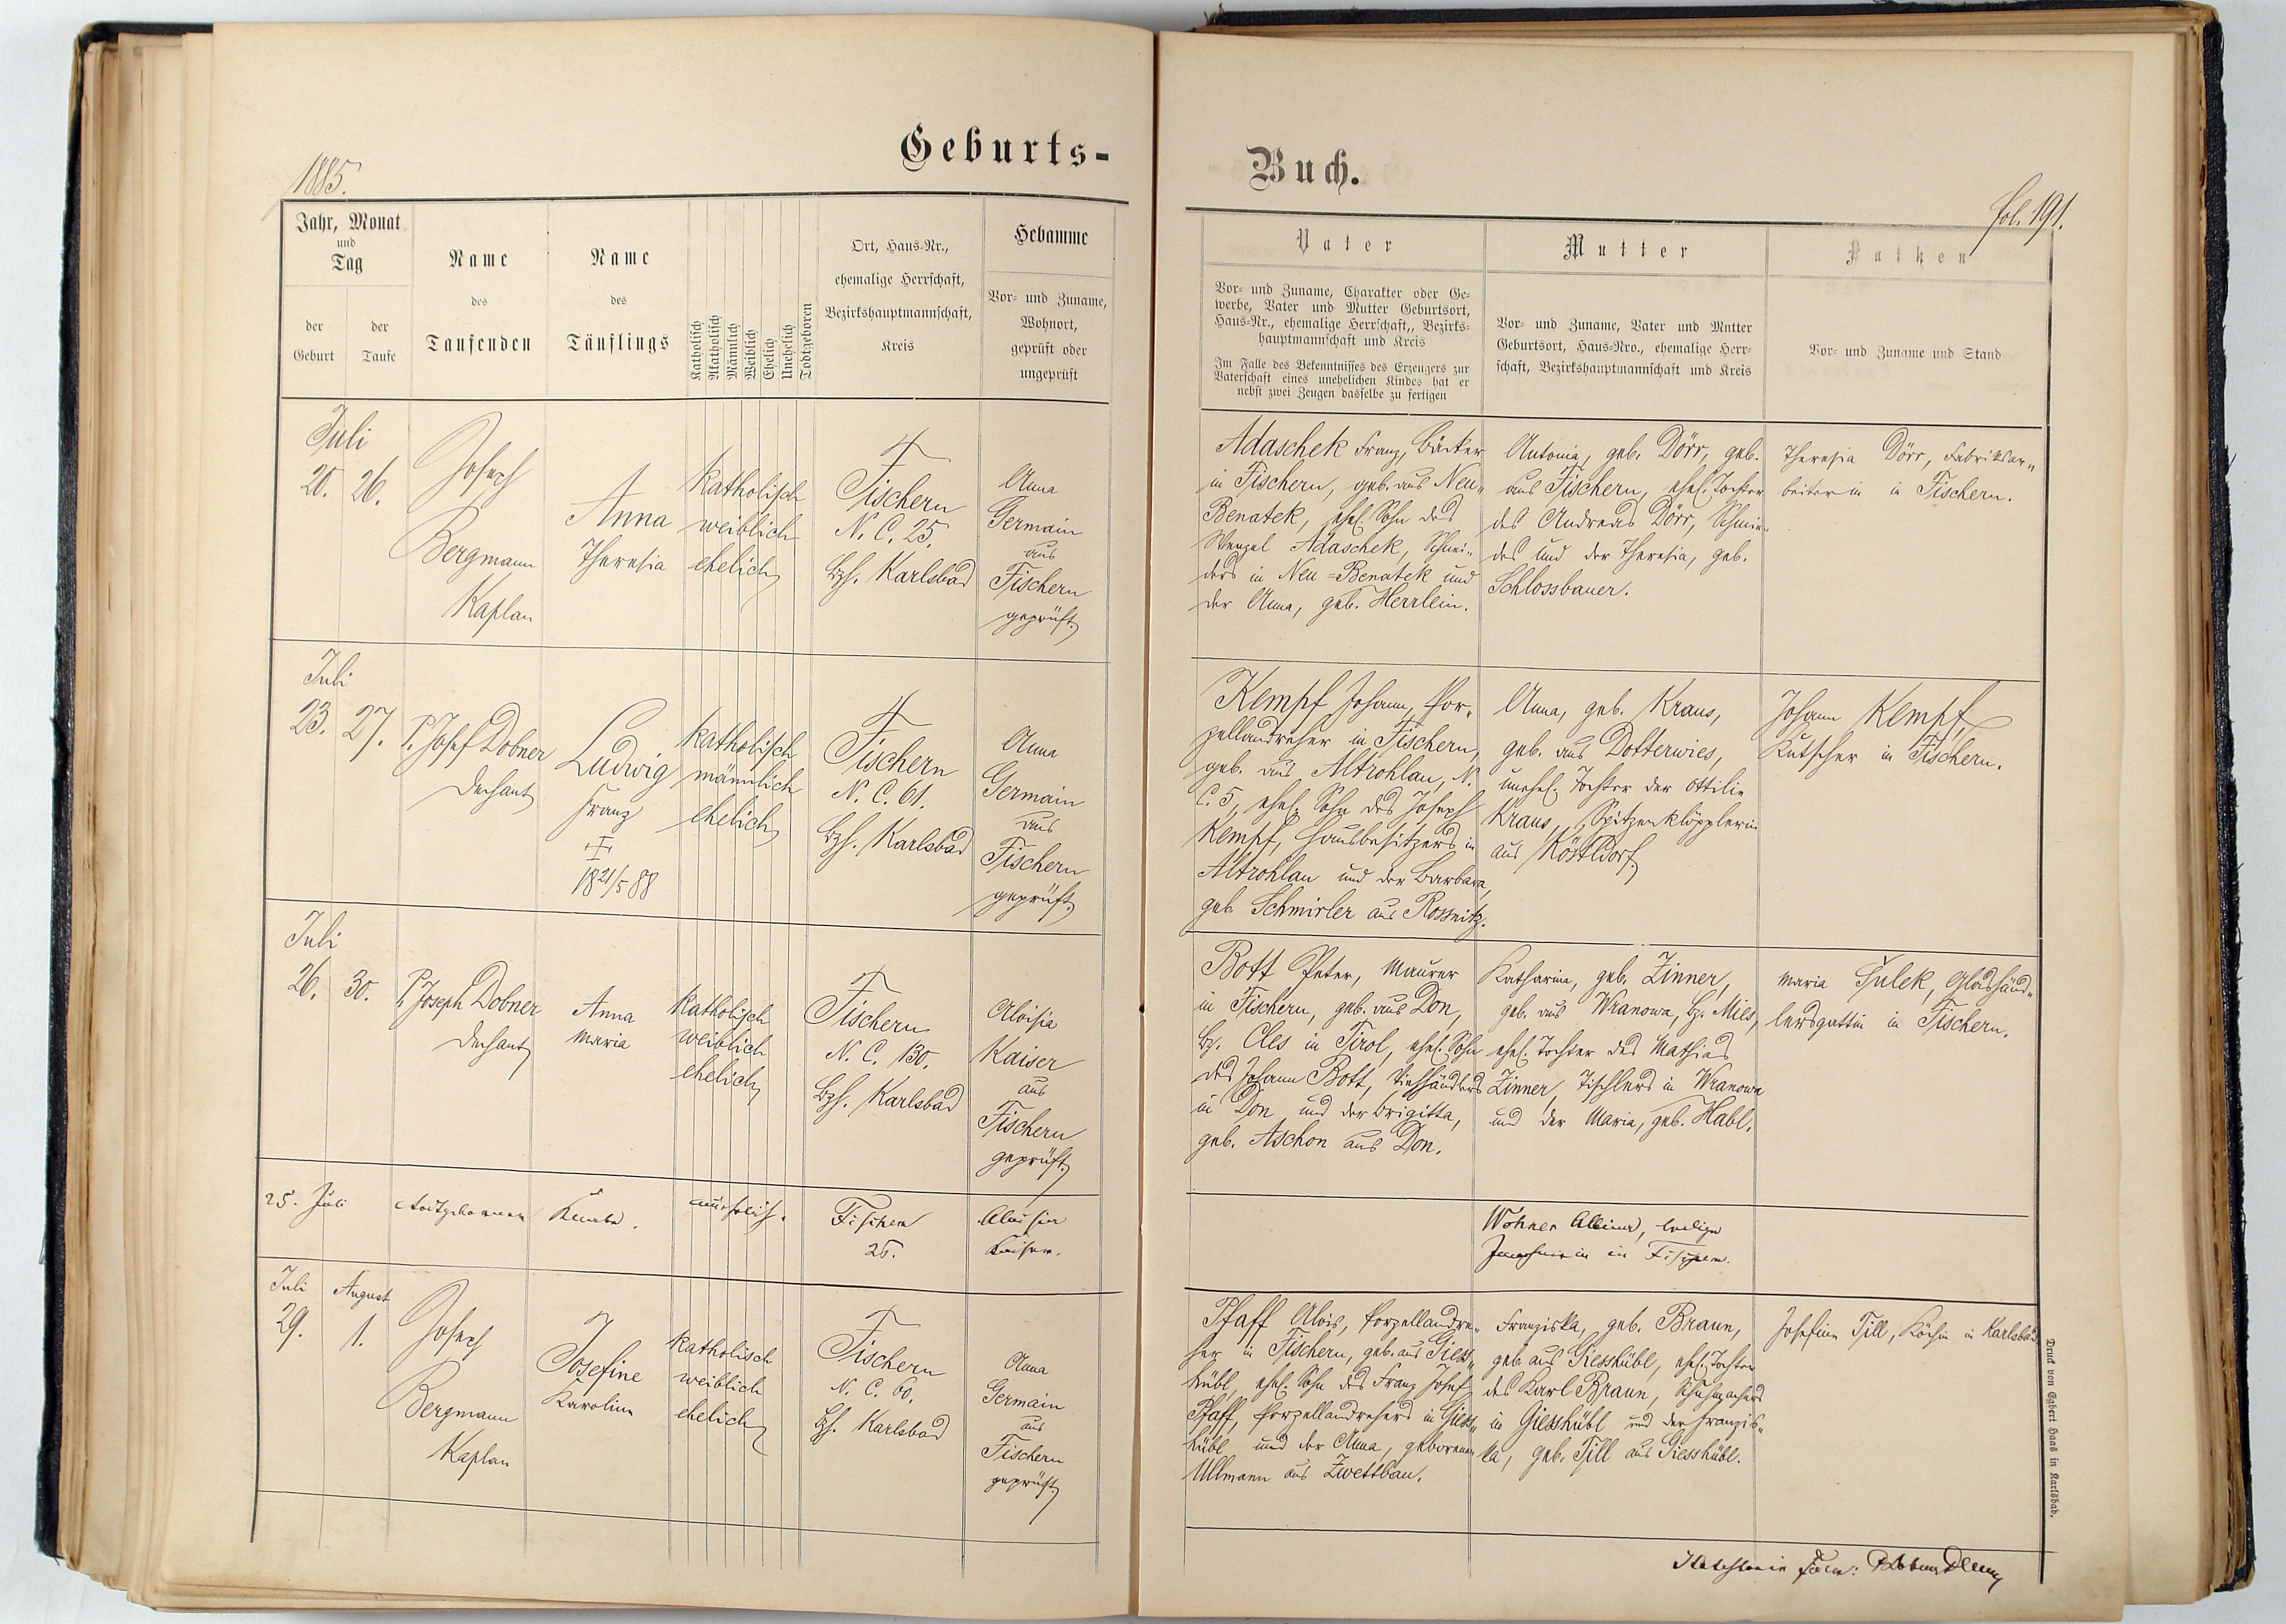 Geburts-
1885.
Jahr, Monat
und
Tag
der
Geburt
der
Taufe
Name
des
Taufenden
Name
des
Täuflings
Katholisch
Akatholisch
Männlich
Weiblich
Ehelich
Unehelich
Todtgeboren
Ort, Haus-Nr.,
ehemalige Herrschaft,
Bezirkshauptmannschaft,
Kreis
Hebamme
Vor- und Zuname,
Wohnort,
geprüft oder
ungeprüft
Juli
20. 26.
Joseph
Bergmann
Kaplan
Anna
Theresia
katholisch
weiblich
ehelich
Fischern
N. C. 25.
Bzh. Karlsbad
Anna
Germain
aus
Fischern
geprüft.
Juli
23. 27.
P. Josef Dobner
Dechant
Ludwig
Franz
18 21/5 88
katholisch
männlich
ehelich
Fischern
N. C. 61.
Bzh. Karlsbad
Anna
Germain
aus
Fischern
geprüft.
Juli
26. 30.
P. Joseph Dobner
Dechant
Anna
Maria
katholisch
weiblich
ehelich
Fischern
N. C. 130.
Bzh. Karlsbad
Aloisia
Kaiser
aus
Fischern
geprüft.
25. Juli
todtgeborener
Knabe.
unehelich.
Fischern
25.
Aloisia
Kaiser.
Juli August
29. 1.
Joseph
Bergmann
Kaplan
Josefine
Karolina
katholisch
weiblich
ehelich
Fischern
N. C. 60.
Bzh. Karlsbad
Anna
Germain
aus
Fischern
geprüft.
Buch.
fol. 191.
Vater
Vor- und Zuname, Charakter oder Ge-
werbe, Vater und Mutter Geburtsort,
Haus-Nr., ehemalige Herrschaft,, Bezirks-
hauptmannschaft und Kreis
Im Falle des Bekenntnisses des Erzeugers zur
Vaterschaft eines unehelichen Kindes hat er
nebst zwei Zeugen dasselbe zu fertigen
Mutter
Vor- und Zuname, Vater und Mntter
Geburtsort, Haus-Nro., ehemalige Herr-
schaft, Bezirkshauptmannschaft und Kreis
Pathen
Vor- und Zuname und Stand
Adaschek Franz, Bäcker
in Fischern, geb. aus Neu-
Benatek, ehel. Sohn des
Wenzel Adaschek, Schnei-
ders in Neu-Benatek und
der Anna, geb. Herrlein.
Antonia, geb. Dörr, geb.
aus Fischern, ehel. Tochter
des Andreas Dörr, Schmie-
des und der Theresia, geb.
Schlossbauer.
Theresia Dörr, Fabriksar-
beiterin in Fischern.
Kempf Johann, Por-
zellandreher in Fischern,
geb. aus Altrohlau, N.
C. 5, ehel. Sohn des Joseph
Kempf, Hausbesitzers in
Altrohlau und der Barbara,
geb. Schmirler aus Rossnitz.
Anna, geb. Kraus,
geb. aus Dotterwies,
unehel. Tochter der Ottilie
Kraus, Spitzenklöpplerin
aus Köstldorf.
Johann Kempf,
Kutscher in Fischern.
Bott Peter, Maurer
in Fischern, geb. aus Don,
Bz. Cles in Tirol, ehel. Sohn
des Johann Bott, Viehhändlers
in Don und der Brigitta,
geb. Aschon aus Don.
Katharina, geb. Zinner,
geb. aus Wranowa, Bz. Mies,
ehel. Tochter des Mathias
Zinner, Tischlers in Wranowa
und der Maria, geb. Habl.
Maria Šulek, Glashänd-
lersgattin in Fischern.
Wohner Albina, ledige
in Fischern.
Pfaff Alois, Porzellandre-
her in Fischern, geb. aus Giess-
hübl, ehel. Sohn des Franz Josef
Pfaff, Porzellandrehers in Giess-
hübl und der Anna, geborenen
Ullmann aus Zwettbau.
Franziska, geb. Braun,
geb. aus Giesshübl, ehel. Tochter
des Karl Braun, Schuhmachers
in Giesshübl und der Franzis-
ka, geb. Till aus Giesshübl.
Josefine Till, Köchin in Karlsbad
Druck von Egbert Haas in Karlsbad.